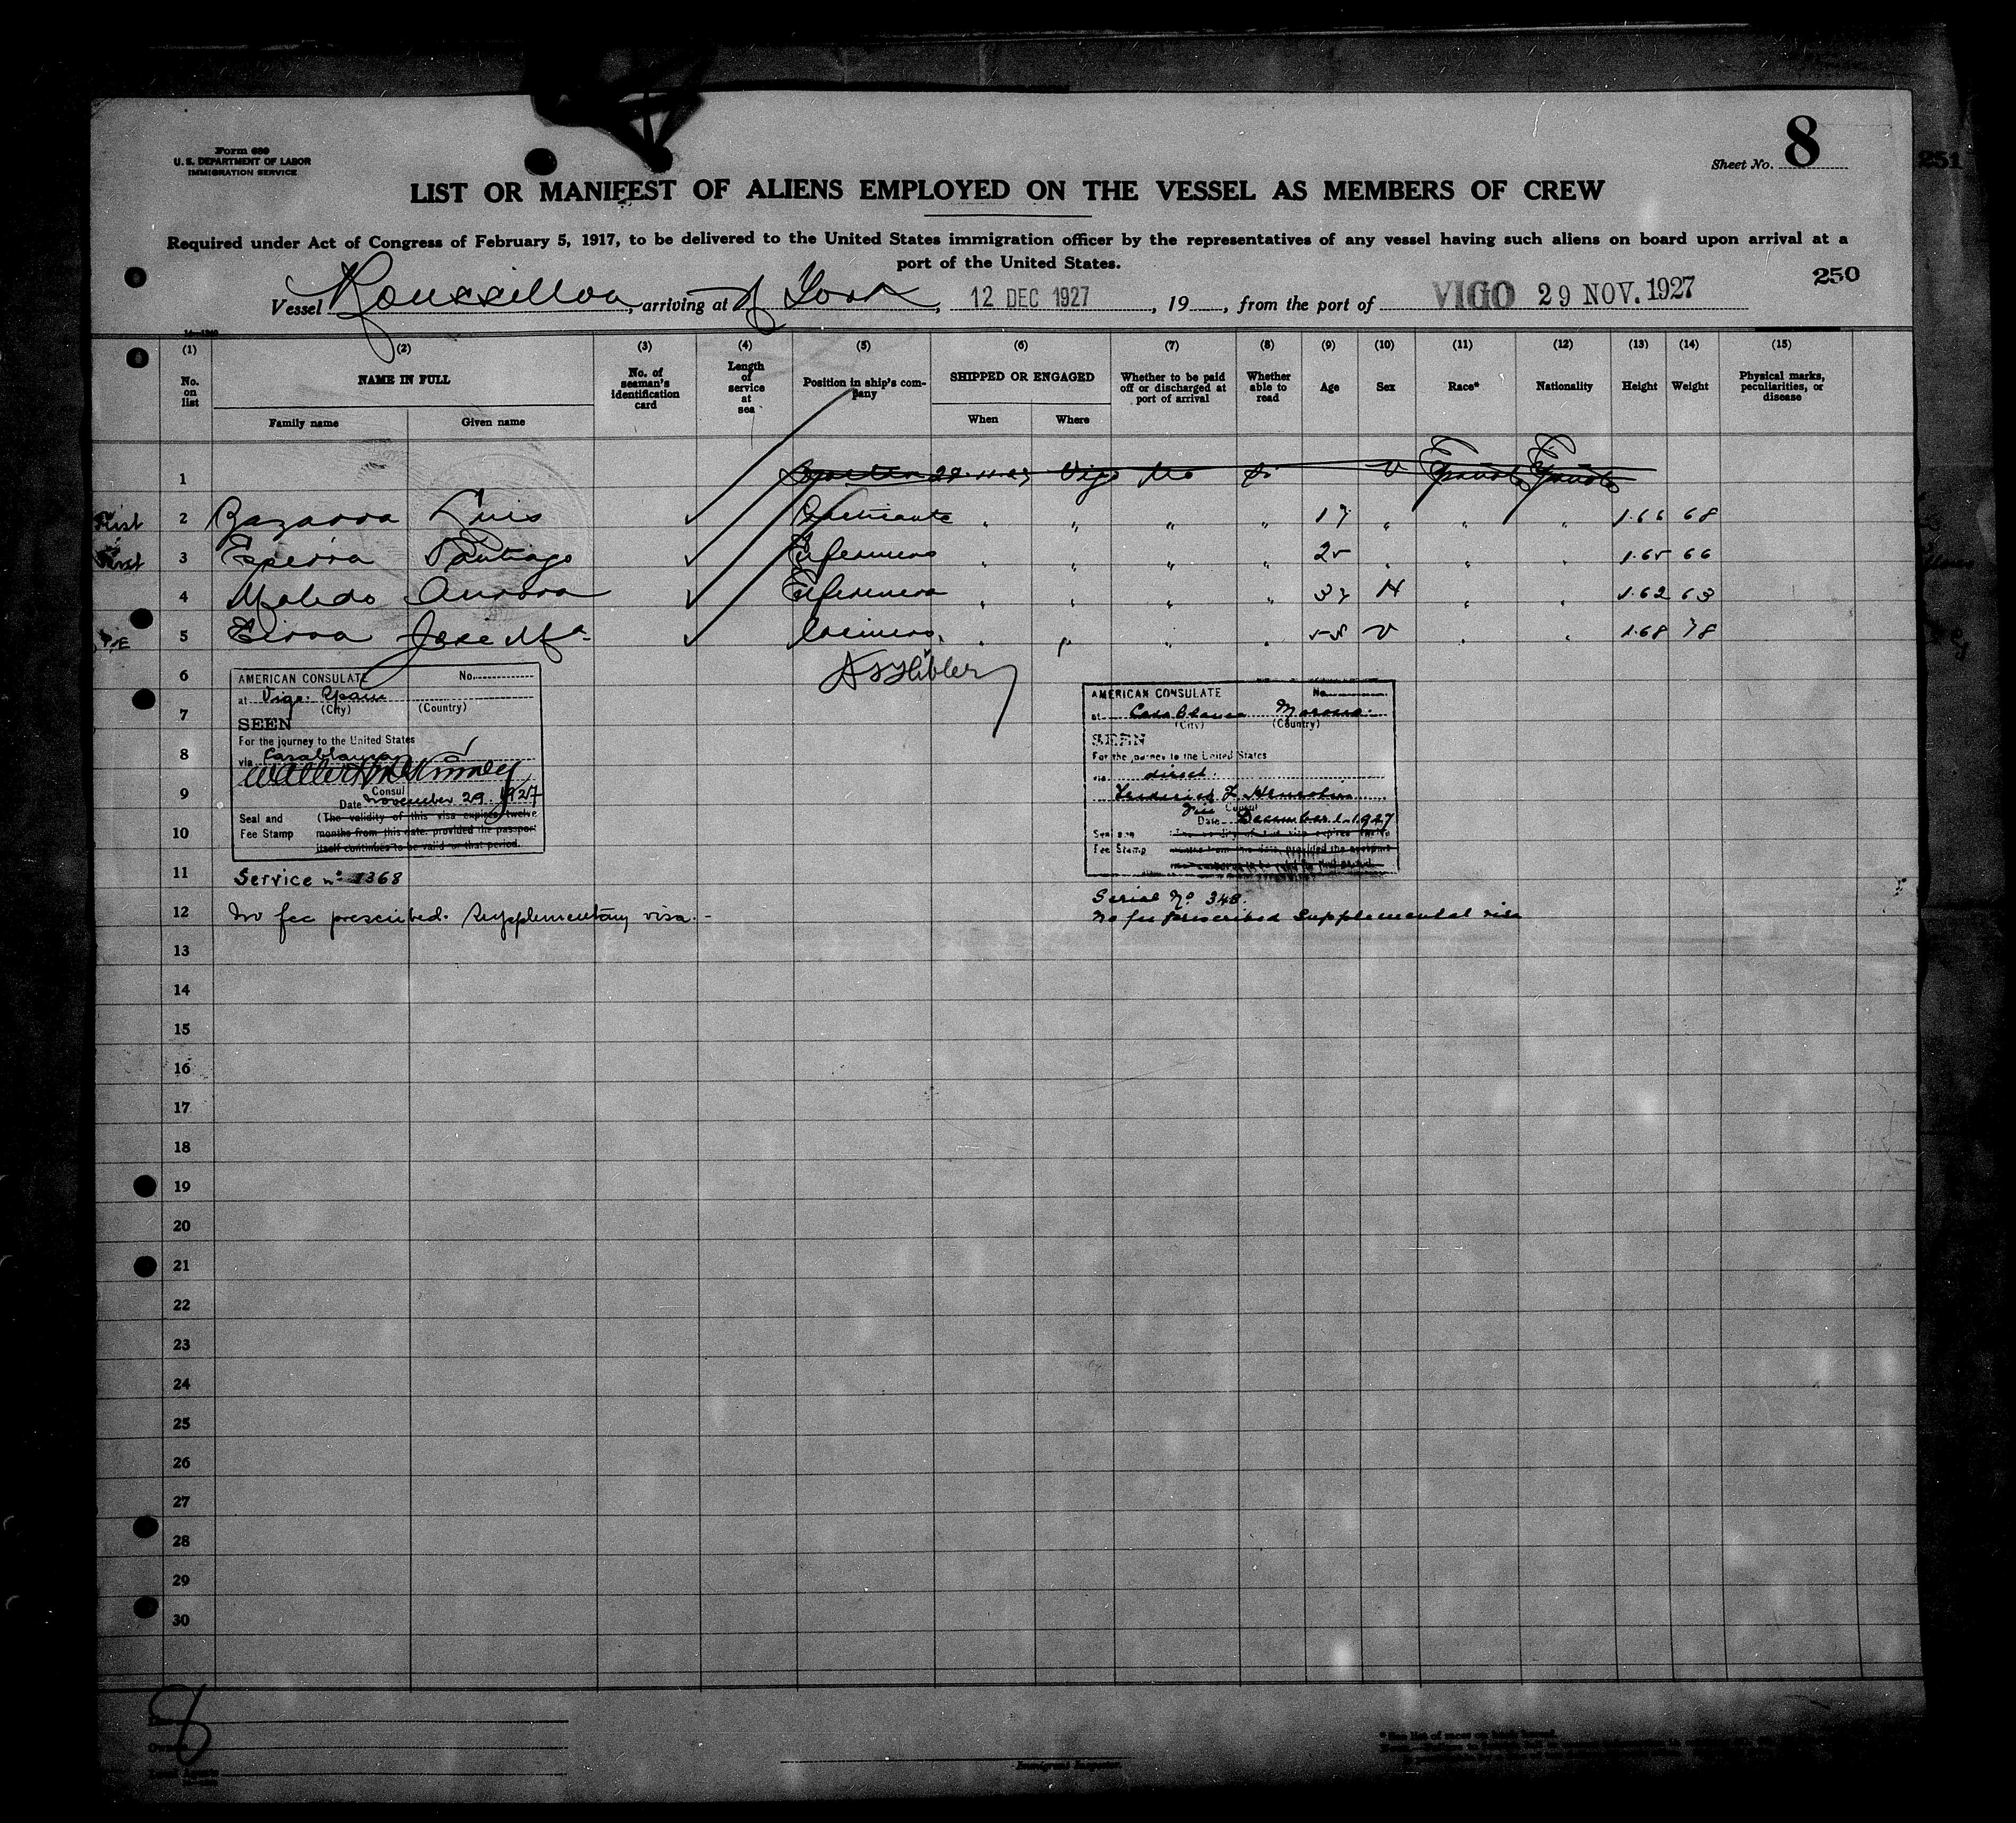 Form 680
U. S. DEPARTMENT OF LABOR
IMMIGRATION SERVICE
Sheet No. 8
251
LIST OR MANIFEST OF ALIENS EMPLOYED ON THE VESSEL AS MEMBERS OF CREW
Required under Act of Congress of February 5, 1917, to be delivered to the United States immigration officer by the representatives of any vessel having such aliens on board upon arrival at a
port of the United States.
250
Vessel Roussillon, arriving at N York, 12 DEC 1927, 19, from the port of VIGO 29 NOV. 1927
(1) (2) (3) (4) (5) (6) (7) (8) (9) (10) (11) (12) (13) (14) (15)
No. on list NAME IN FULL No. of seaman's identification card Length of service at sea Position in ship's company SHIPPED OR ENGAGED Whether to be paid off or discharged at port of arrival Whether able to read Age Sex Race* Nationality Height Weight Physical marks, peculiarities, or disease
Family name Given name When Where
1 29-11-27 Vigo No Si V Española Española
First 2 Luis " " " " 17 " " " 1.66 68
First 3 Santiago Enfermero " " " " 25 " " " 1.65 66
4 Moledo Aurora Enfermera " " " " 37 H " " 1.62 63
5 Eirra Jose Mª Cocinero " " " " 55 V " " 1.68 78
6
7
8
9
10
11
12
13
14
15
16
17
18
19
20
21
22
23
24
25
26
27
28
29
30
AMERICAN CONSULATE No.
at Vigo. Spain
(City) (Country)
SEEN
For the journey to the United States
via Casablanca
Consul
Date November 29. 1927
Seal and (The validity of this visa expires twelve
Fee Stamp months from this date, provided the passport
itself continues to be valid for that period.
Service nº 1368
No fee prescribed. Supplementary visa.-
AMERICAN CONSULATE No.
at Casablanca Morocco.
(City) (Country)
SEEN
For the journey to the United States
via direct.
Consul
Date December 1-1927
Seal and
Fee Stamp
Serial Nº 348.
No fee prescribed Supplemental visa
8
Immigrant Inspector.